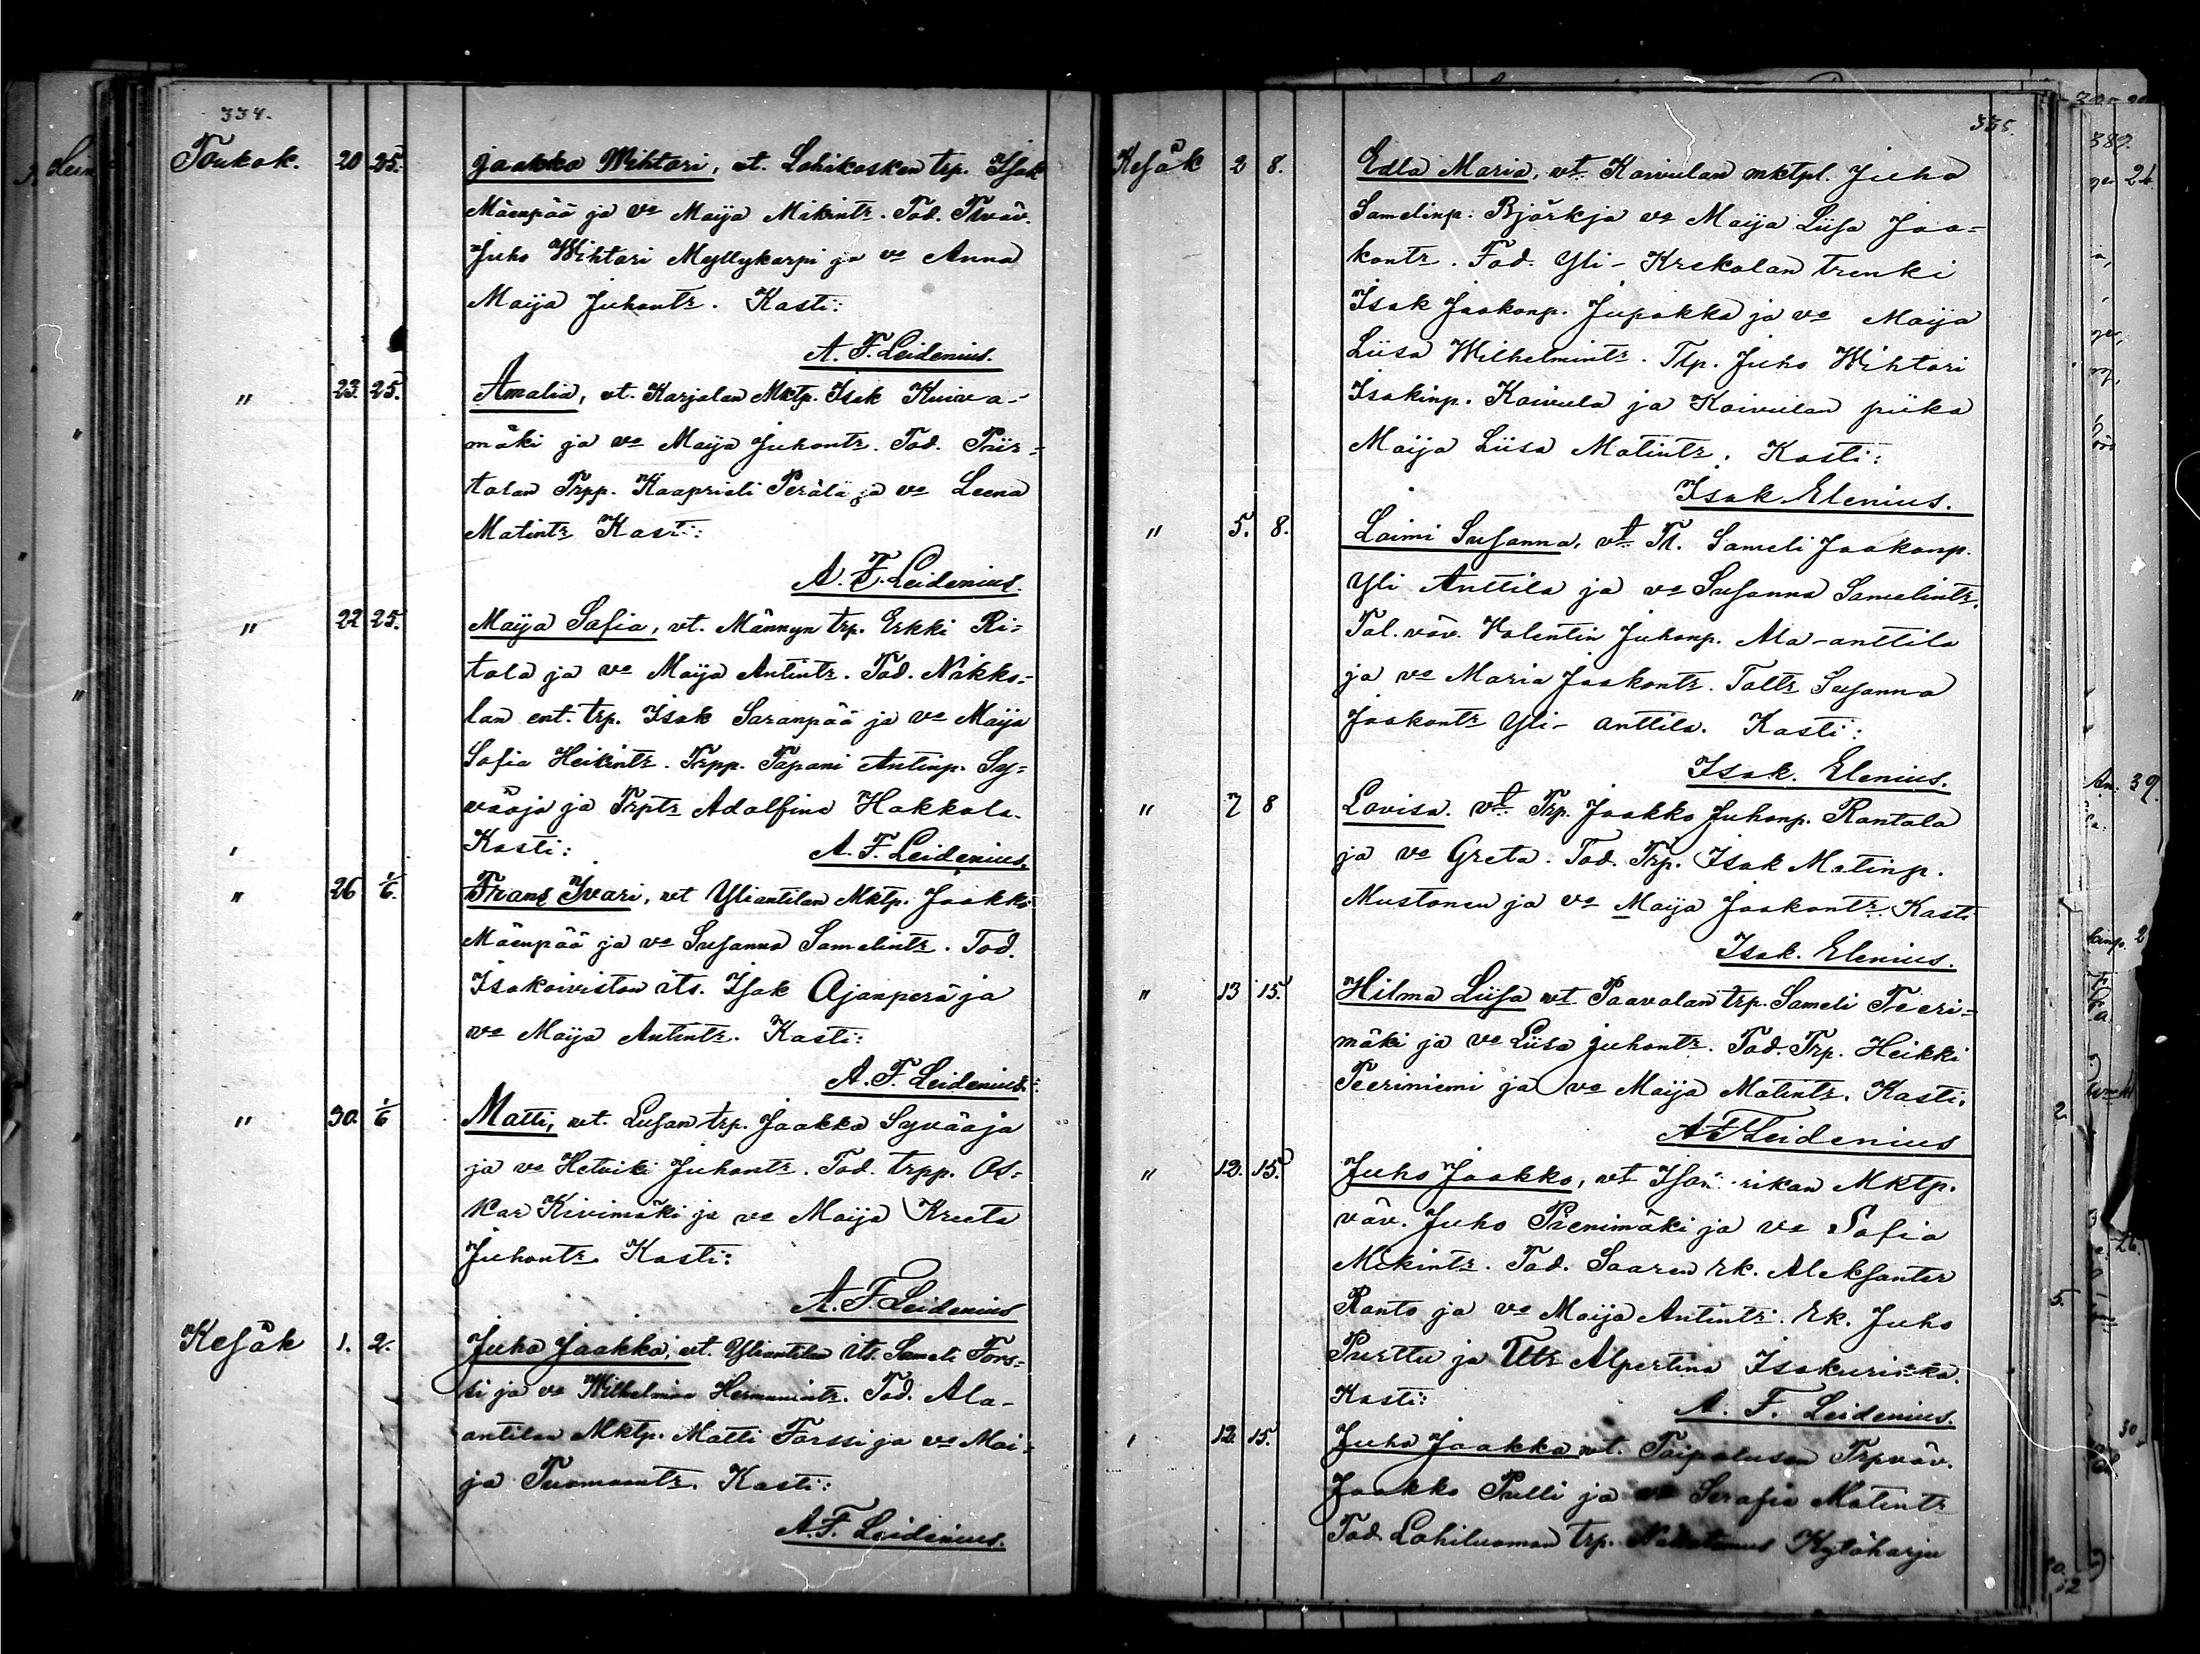 334.
Toukok. 20 25. Jaakko Wihtori, vt. Lohikosken trp. Isak
Mäenpää ja vo Maija Mikintr. Tod. Trväv.
Juho Wihtori Myllykarpi ja vo Anna
Maija Juhontr. Kasti:
A. F. Leidenius.
" 23. 25. Amalia, vt. Karjalan Mktp. Isak Kuiva-
mäki ja vo Maija Juhontr. Tod. Piir=
tolan Trpp. Kaaprieli Perälä ja vo Leena
Matintr Kasti:
A. F. Leidenius.
" 22 25. Maija Sofia, vt. Männyn trp. Erkki Ri=
tola ja vo Maija Antintr. Tod. Nikko=
lan ent. trp. Isak Saranpää ja vo Maija
Sofia Heikintr. Trpp. Tapani Antinp. Sy=
vääoja ja Trptr Adolfina Hakkola.
Kasti: A. F. Leidenius.
" 26 1/6. Frans Ivari, vt Yliantilan Mktp. Jaakko
Mäenpää ja vo Susanna Samelintr. Tod.
Isokoiviston its. Isak Ojanperä ja
vo Maija Antintr. Kasti:
A. F. Leidenius.
" 30. 1/6 Matti, vt. Lusan trp. Jaakko Syvääoja
ja vo Hetviki Juhontr. Tod. trpp. Os=
kar Kivimäki ja vo Maija Kreeta
Juhontr. Kasti:
A. F. Leidenius
Kesäk 1. 2. Juho Jaakko, vt. Yliantilan its. Sameli Fors=
si ja vo Wilhelmina Hermanintr. Tod. Ala-
antilan Mktp. Matti Forssi ja vo Mai=
ja Tuomaantr. Kasti:
A. F. Leidenius.
335.
Kesäk 2 8. Edla Maria, vt. Koivulan mktpl. Juho
Samelinp. Björk ja vo Maija Liisa Jaa=
kontr. Tod. Yli-Krekolan trenki
Isak Jaakonp. Jupakka ja vo Maija
Liisa Wilhelmintr. Tlp. Juho Wihtori
Isakinp. Koivula ja Koivulan piika
Maija Liisa Matintr. Kasti:
Isak Elenius.
" 5. 8. Laimi Susanna, vt. Tl. Sameli Jaakonp.
Yli Anttila ja vo Susanna Samelintr.
Tal. väv. Valentin Juhonp. Ala-anttila
ja vo Maria Jaakontr. Taltr Susanna
Jaakontr Yli-anttila. Kasti:
Isak. Elenius.
" 7 8 Lovisa. vt. Trp. Jaakko Juhonp. Rantala
ja vo Greta. Tod. Trp. Isak Matinp.
Mustonen ja vo Maija Jaakontr. Kasti
Isak. Elenius.
" 13 15. Hilma Liisa vt Paavolan trp. Sameli Teeri=
mäki ja vo Liisa Juhontr. Tod. Trp. Heikki
Teeriniemi ja vo Maija Matintr. Kasti.
A F Leidenius
" 12. 15. Juho Jaakko, vt rikan Mktp.
väv. Juho Pienimäki ja vo Sofia
Mikintr. Tod. Saaren rk. Aleksanter
Ranto ja vo Maija Antintr. Rk. Juho
Purttu ja Ttr Alpertina Isokurikka.
Kasti: A. F. Leidenius.
12. 15. Juho Jaakko vt. Taipaluson Trpväv.
Jaakko Pulli ja vo Serafia Matintr
Tod. Lohiluoman trp. Kytöharju